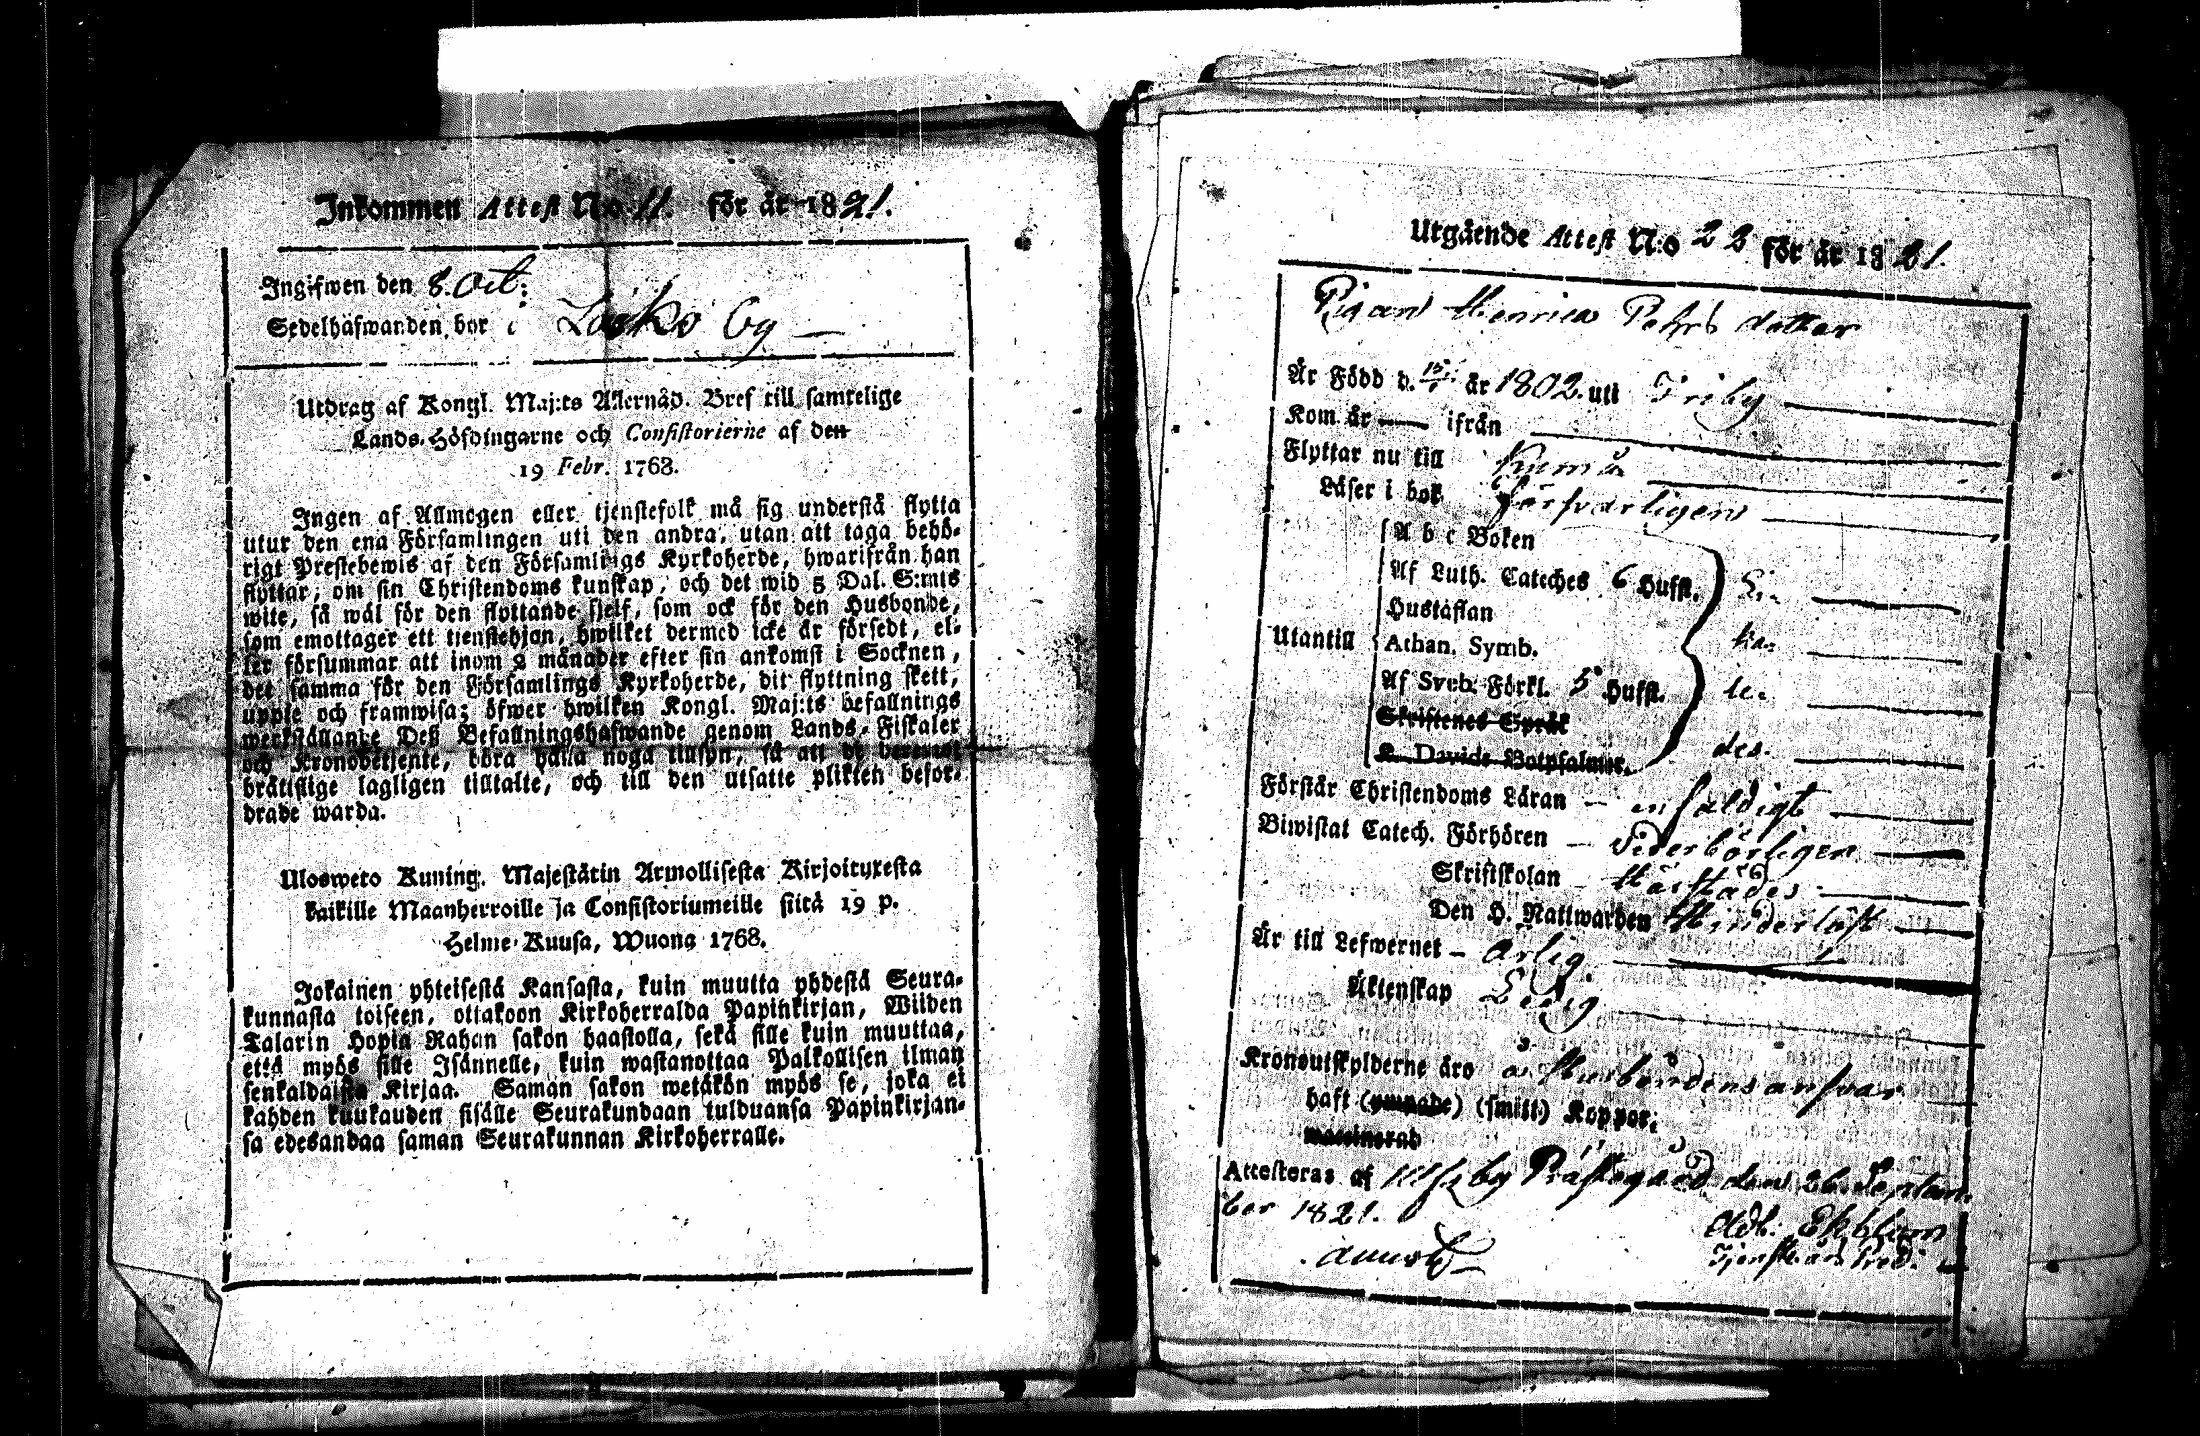 Inkommen Attest N:o 11. för år 1821.
Ingifwen den 8. Oct:
Sedelhafwanden bor i Löökö by
Utdrag af Kongl. Maj:ts Allernåd. Bref till samtelige
Lands-Höfdingarne och Consistorierne af den
19 Febr. 1768.
Ingen af Allmogen eller tjenstefolk må sig understå flytta
utur den ena Församlingen uti den andra, utan att taga behö-
rigt Prestebewis af den Församlings Kyrkoherde, hwarifrån han
flyttar, om sin Christendoms kunskap, och det wid 5 Dal. S:mts
wite, så wäl för den flyttande sjelf, som ock för den Husbonde,
som emottager ett tjenstehjon, hwilket dermed icke är försedt, el-
ler försummar att inom 2 månader efter sin ankomst i Socknen,
det samma för den Församlings Kyrkoherde, dit flyttning skett,
uppte och framwisa; öfwer hwilken Kongl. Maj:ts befallnings
werkställande Deß Befallningshafwande genom Lands-Fiskaler
och Kronobetjente, böra hålla noga tillsyn, så att de
brättslige lagligen tilltalte, och till den utsatte plikten befor-
drade warda.
Ulosweto Kuning. Majestätin Armollisesta Kirjoituxesta
kaikille Maanherroille ja Consistoriumeille siitä 19 p.
Helme-Kuusa, Wuona 1768.
Jokainen yhteisestä Kansasta, kuin muutta yhdestä Seura-
kunnasta toiseen, ottakoon Kirkoherralda Papinkirjan, Wiiden
Talarin Hopia Rahan sakon haastolla, sekä sille kuin muuttaa,
että myös sille Isännelle, kuin wastanottaa Palkollisen ilman
senkaldaista Kirjaa. Saman sakon wetäkön myös se, joka ei
kahden kuukauden sisälle Seurakundaan tulduansa Papinkirjan-
sa edesandaa saman Seurakunnan Kirkoherralle.
Utgående Attest N:o 23 för år 1821.
Pigan Henrica Pehrs dotter
Är Född d. 15/ år 1802. uti Friby
Kom år — ifrån
Flyttar nu till Kumå
Läser i bok försvarligen
Utantill
A b c Boken
Af Luth. Cateches 6 Hufst.
Hustaflan
Athan. Symb.
Af Sveb. Förkl. 5 Hufst.
Skriftenes Språk
K. Davids Botpsalmer.
Förstår Christendoms Läran – enfaldigt
Biwistat Catech. Förhören – Vederbörligen
Skriftskolan – Härstädes
Den H. Nattwarden Hinderlöst
Är till Lefwernet – Ärlig
Äktenskap Ledig
Kronoutskylderne äro å Husbondens ansvar
haft (ympade) (smitt) Koppor,
vaccinerad
Attesteras af Ulfsby Prästegård den 26. Septem-
ber 1821.
Adh: Ekblom